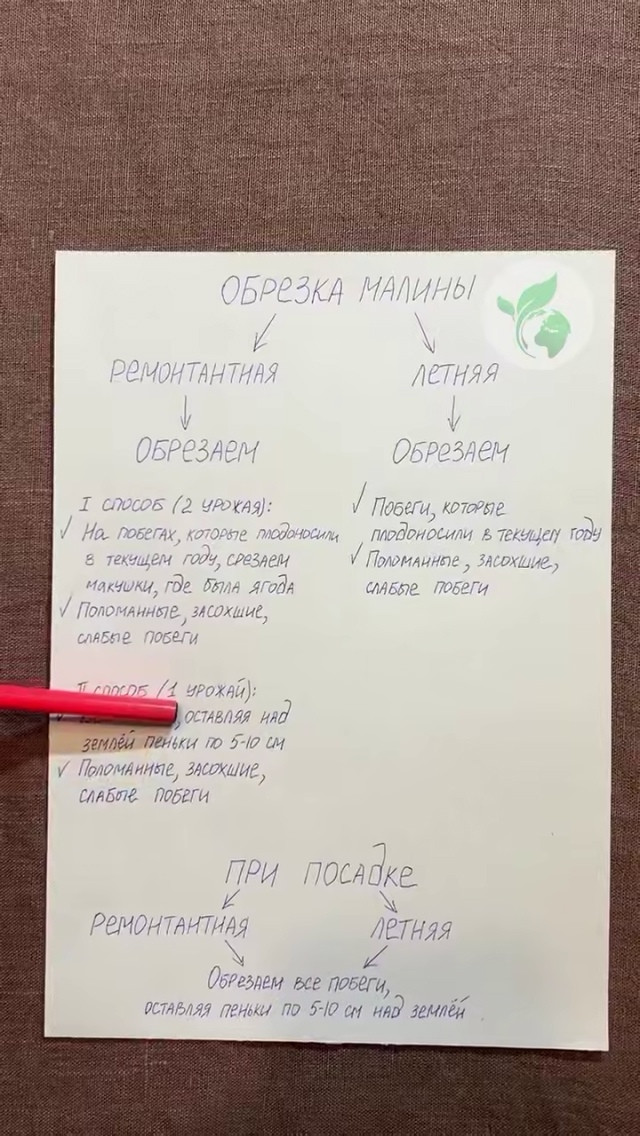 ОБРЕЗКА МАЛИНЫ
РЕМОНТАНТНАЯ
ОБРЕЗАЕМ
I СПОСОБ (2 УРОЖАЯ):
✓ НА ПОБЕГАХ, КОТОРЫЕ ПЛОДОНОСИЛИ
В ТЕКУЩЕМ ГОДУ, СРЕЗАЕМ
МАКУШКИ, ГДЕ БЫЛА ЯГОДА
✓ ПОЛОМАННЫЕ, ЗАСОХШИЕ,
СЛАБЫЕ ПОБЕГИ
II СПОСОБ (1 УРОЖАЙ):
ОСТАВЛЯЯ НАД
ЗЕМЛЁЙ ПЕНЬКИ ПО 5-10 СМ
✓ ПОЛОМАННЫЕ, ЗАСОХШИЕ,
СЛАБЫЕ ПОБЕГИ
ЛЕТНЯЯ
ОБРЕЗАЕМ
✓ ПОБЕГИ, КОТОРЫЕ
ПЛОДОНОСИЛИ В ТЕКУЩЕМ ГОДУ
✓ ПОЛОМАННЫЕ, ЗАСОХШИЕ,
СЛАБЫЕ ПОБЕГИ
ПРИ ПОСАДКЕ
РЕМОНТАНТНАЯ ЛЕТНЯЯ
ОБРЕЗАЕМ ВСЕ ПОБЕГИ,
ОСТАВЛЯЯ ПЕНЬКИ ПО 5-10 СМ НАД ЗЕМЛЁЙ